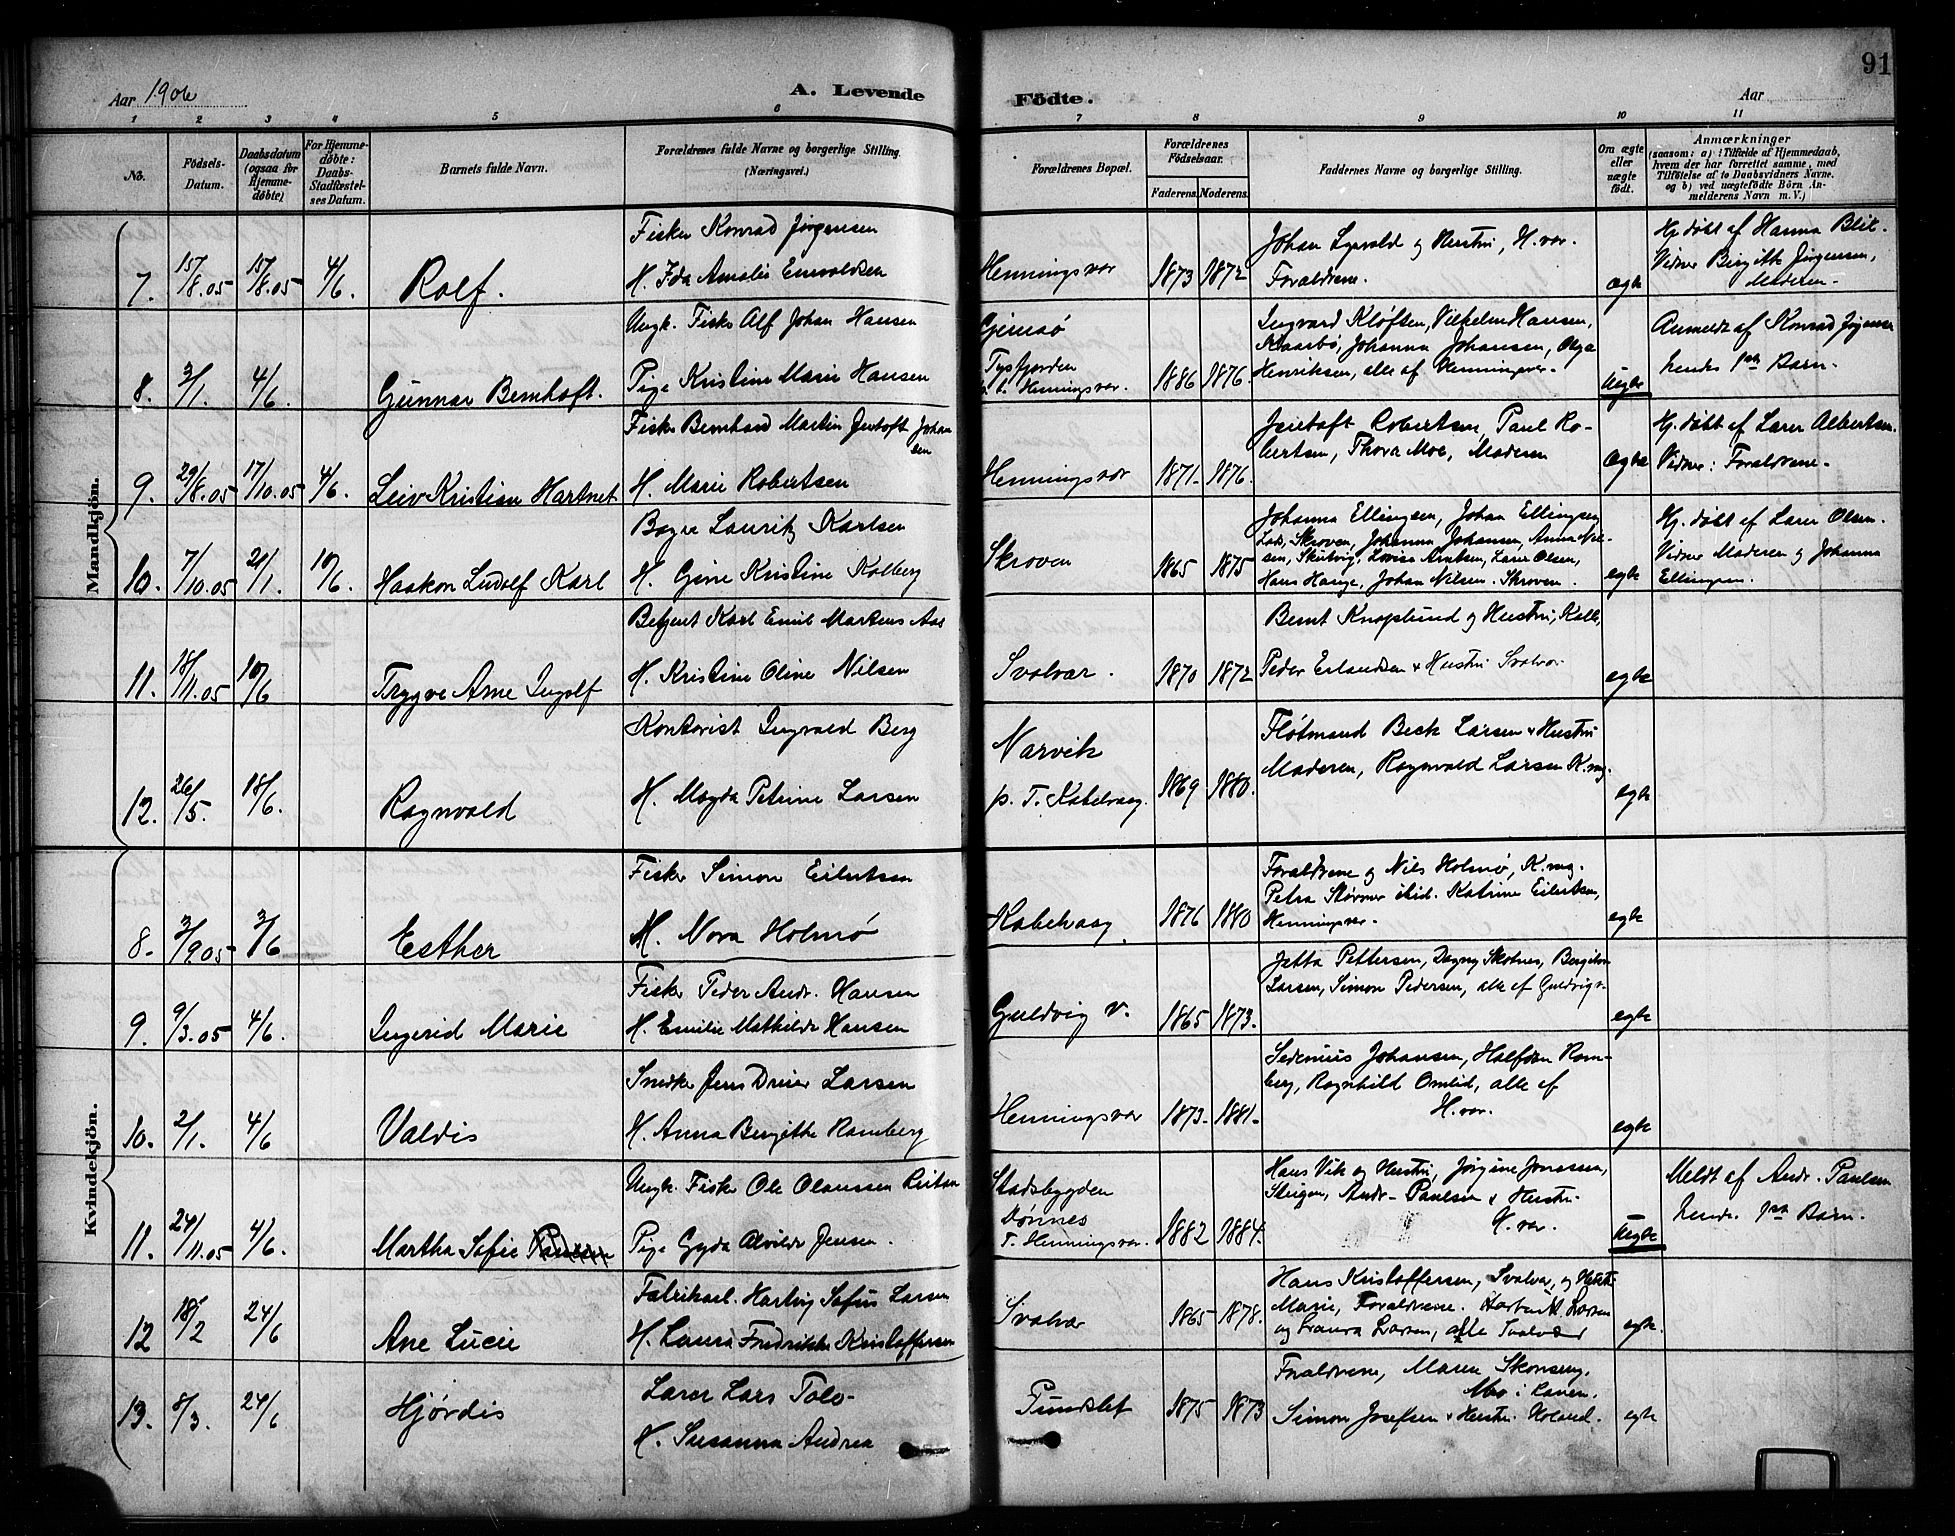 91
Aar 1906
A. Levende
Födte.
Aar
1 2 3 4 5 6 7 8 9 10 11
No.
Födsels-
Datum.
Daabsdatum
(ogsaa for
Hjemme-
döbte)
For Hjemme-
döbte:
Daabs-
Stadfæstel-
ses Datum.
Barnets fulde Navn.
Forældrenes fulde Navne og borgerlige Stilling.
(Næringsvei.)
Forældrenes Bopæl.
Forældrenes
Födselsaar.
Faderens. Moderens.
Faddernes Navne og borgerlige Stilling.
Om ægte
eller
uægte
født.
Anmærkninger
(saasom: a) i Tilfælde af Hjemmedaab,
hvem der har forrettet samme, med
Tilföielse af to Daabsvidners Navne.
og b) ved uægtefödte Börn An-
melderens Navn m. V.)
Mandkjön.
7. 15/8.05 15/8.05 4/6. Rolf.
Fisker Konrad Jørgensen
H. Ida Amalie Envoldsen
Henningsvær 1873 1872
Johan og Hustru, H.vær.
Forældrene.
ægte
Hj. døbt af Hanna Blik.
Vidner Birgitte Jørgensen,
Moderen.
8. 3/1. 4/6. Gunnar Bernhoft.
Ungk. Fisker Alf Johan Hansen
Pige Kristine Marie Hansen
Gimsø
Tysfjorden
Henningsvær. 1886 1876.
Ingvard Kløfsen, Vilhelm Hansen,
Kaarbø, Johanna Johansen, Olga
Henriksen, alle af Henningsvær.
uegte
Anmeldt af Konrad Jørgensen
hendes 1ste Barn.
9. 29/8.05 17/10.05 4/6. Leiv Kristian Hartnet
Fisker Bernhard Martin Jentoft Johan
sen
H. Marie Robertsen
Henningsvær 1871. 1876.
Jentoft Robertsen, Paul Ro-
bertsen, Thora Moe, Moderen
ægte
Hj. døbt af Lærer Albertsen.
Vidner: Forældrene.
10. 7/10.05 21/1. 10/6. Haakon Ludolf Karl
Bager Lauritz Karlsen
H. Gine Kristine Kolberg
Skroven 1865 1875
Johanna Ellingsen, Johan Ellingsen
Skroven, Johanna Johansen, Anna Niel-
sen, Skutvig, Lovise Arntsen, Lærer Olsen,
Hans Hauge, Johan Nilsen. Skroven.
egte
Hj. døbt af Lærer Olsen.
Vidner Moderen og Johanna
Ellingsen.
11. 18/11.05 10/6 Trygve Arne Ingolf
Betjent Karl Emil Markus Aas
H. Kristine Oline Nilsen
Svolvær. 1870 1872
Bernt Knaplund og Hustru, Kalle,
Peder Erlandsen + Hustru Svolvær
egte
12. 26/5. 18/6. Ragnvald
Kontorist Ingvald Berg
H. Magda Petrine Larsen
Narvik
p. T. Kabelvaag. 1869 1880.
Fløtmand Beck Larsen + Hustru
Moderen, Ragnvald Larsen K.vag.
egte
Kvindekjön.
8. 3/9.05 3/6 Esther
Fisker Simon Eilertsen
H. Nora Holmø
Kabelvaag. 1876 1880
Forældrene og Nils Holmø, K.vag.
Petra Størmer ibid. Katrine Eilertsen,
Henningsvær.
egte
9. 9/3.05 4/6. Ingerid Marie
Fisker Peder Andr. Hansen
H. Emilie Mathilde Hansen
Guldvig V. 1865 1873.
Jetta Pettersen, Dagny Skotnes, Bergiton
Larsen, Simon Pedersen, alle af Guldvig v.
egte
10. 2/1. 4/6 Valdis
Snedker Jens Dreier Larsen
H. Anna Bergithe Ramberg
Henningsvær 1873. 1881.
Sedenius Johansen, Halfdan Ram-
berg, Ragnhild Omlid, alle af
H.vær.
egte
11. 24/11.05 4/6. Martha Sofie
Ungk. Fisker Ole Olaussen Reitan
Pige Gyda Alvilde Jensen.
Stadsbygden
Dønnes
T. Henningsvær. 1882 1884.
Hans Vik og Hustru, Jørgine Jonassen,
Steigen, Andr. Paulsen + Hustru
H.vær.
uegte
Meldt af Andr. Paulsen
hendes 1ste Barn.
12 18/2 24/6 Ane Lucie
Fabrikarb. Hartvig Sofus Larsen
H. Laura Fredrikke Kristoffersen
Svolvær 1865 1878.
Hans Kristoffersen, Svolvær, og Hustru
Marie, Forældrene. Larsen
og Laura Larsen, alle Svolvær
egte.
13. 8/3. 24/6 Hjørdis
Lærer Lars Tolo-
H. Susanna Andrea
Pundslet 1875 1873
Forældrene, Maren Skonseng.
Mo i Ranen.
Simon Josefsen + Hustru. Holand.
egte